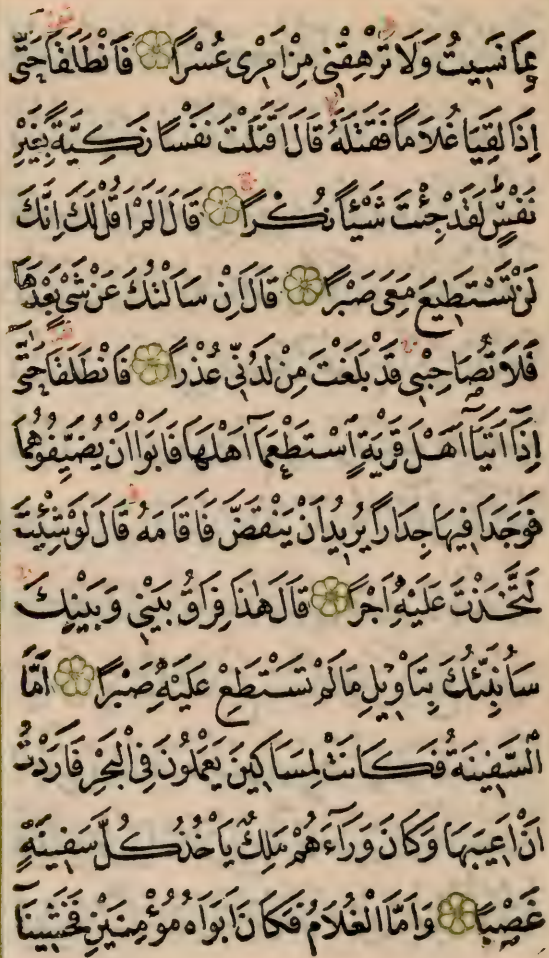 بِمَا نَسِيتُ وَلَا تُرْهِقْنِي مِنْ اَمْرِي عُسْرًا ۝ فَانْطَلَقَا حَتّٰى
اِذَا لَقِيَا غُلَامًا فَقَتَلَهُ قَالَ اَقَتَلْتَ نَفْسًا زَكِيَّةً بِغَيْرِ
نَفْسٍ لَقَدْ جِئْتَ شَيْئًا نُكْرًا ۝ قَالَ اَلَمْ اَقُلْ لَكَ اِنَّكَ
لَنْ تَسْتَطِيعَ مَعِيَ صَبْرًا ۝ قَالَ اِنْ سَاَلْتُكَ عَنْ شَيْءٍ بَعْدَهَا
فَلَا تُصَاحِبْنِي قَدْ بَلَغْتَ مِنْ لَدُنِّي عُذْرًا ۝ فَانْطَلَقَا حَتّٰى
اِذَا اَتَيَا اَهْلَ قَرْيَةٍ اسْتَطْعَمَا اَهْلَهَا فَاَبَوْا اَنْ يُضَيِّفُوهُمَا
فَوَجَدَا فِيهَا جِدَارًا يُرِيدُ اَنْ يَنْقَضَّ فَاَقَامَهُ قَالَ لَوْ شِئْتَ
لَتَّخَذْتَ عَلَيْهِ اَجْرًا ۝ قَالَ هٰذَا فِرَاقُ بَيْنِي وَبَيْنِكَ
سَاُنَبِّئُكَ بِتَاْوِيلِ مَا لَمْ تَسْتَطِعْ عَلَيْهِ صَبْرًا ۝ اَمَّا
السَّفِينَةُ فَكَانَتْ لِمَسَاكِينَ يَعْمَلُونَ فِي الْبَحْرِ فَاَرَدْتُ
اَنْ اَعِيبَهَا وَكَانَ وَرَاءَهُمْ مَلِكٌ يَاْخُذُ كُلَّ سَفِينَةٍ
غَصْبًا ۝ وَاَمَّا الْغُلَامُ فَكَانَ اَبَوَاهُ مُؤْمِنَيْنِ فَخَشِينَا